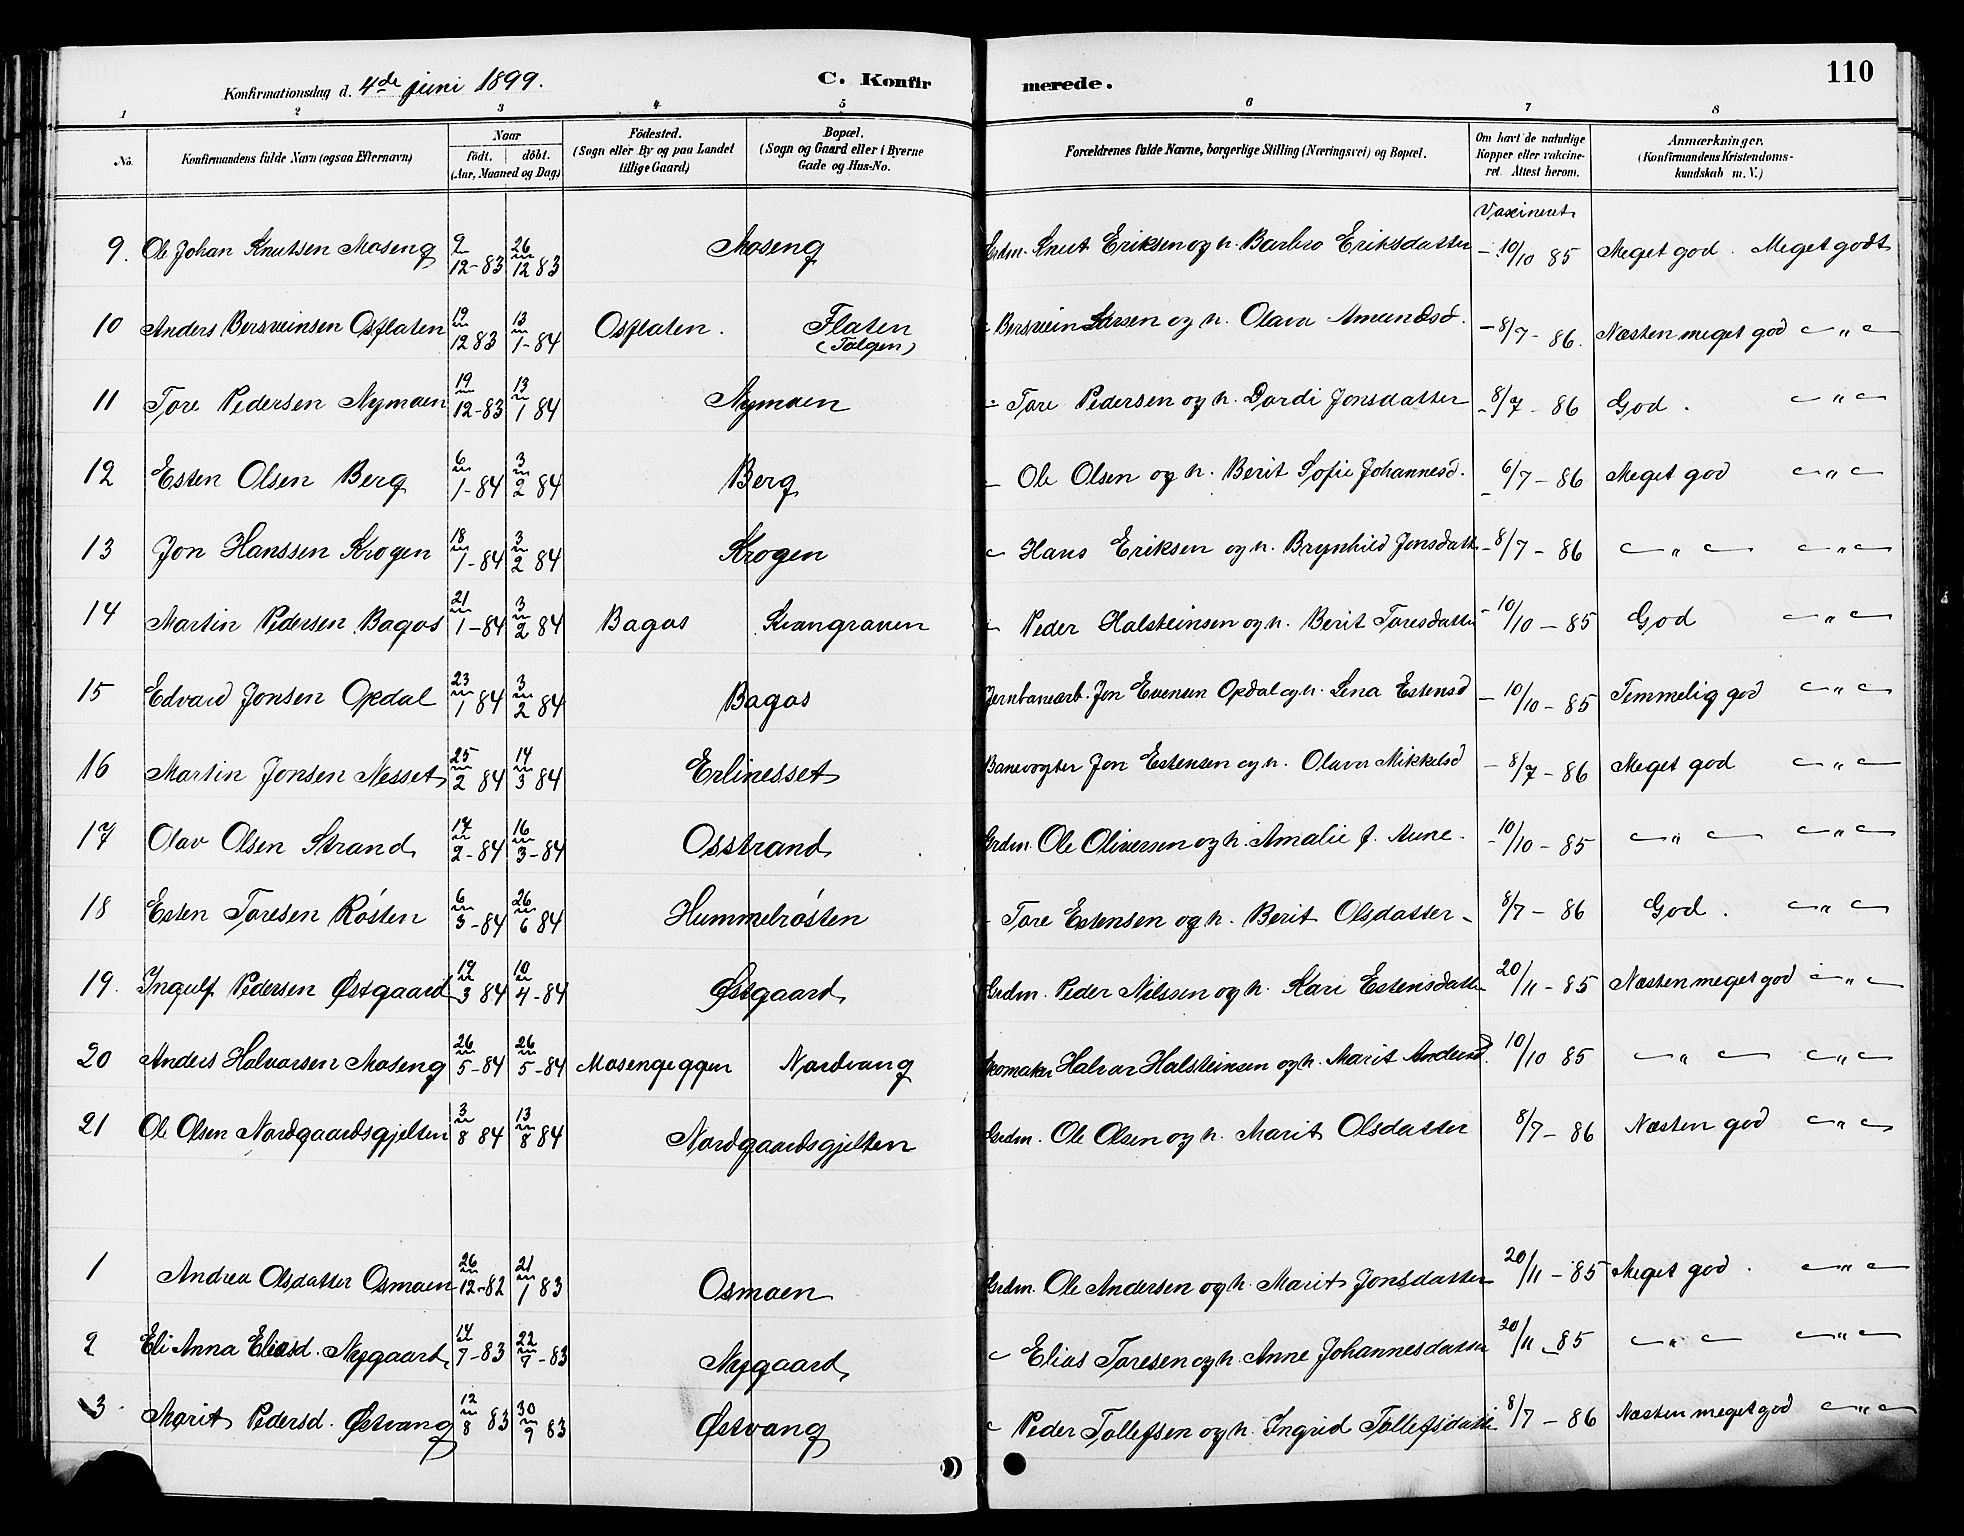 Konfirmationsdag d. 4de juni 1899. C. Konfir merede. 110
1 2 3 4 5 6 7 8
No. Konfirmandens fulde Navn (ogsaa Efternavn) Naar födt. döbt. (Aar, Maaned og Dag) Födested. (Sogn eller By og paa Landet tillige Gaard) Bopæl. (Sogn og Gaard eller i Byerne Gade og Hus-No. Forældrenes fulde Navne, borgerlige Stilling (Næringsvei) og Bopæl. Om havt de naturlige Kopper eller vakcineret. Attest herom. Anmærkninger. (Konfirmandens Kristendomskundskab m. V.)
Vaxineret
9. Ole Johan Knutsen Moseng 9/12-83 26/12 83 Moseng Grdm. Knut Eriksen og h. Barbro Eriksdatter - 10/10 85 Meget god. Meget godt
10 Anders Bersveinsen Osflaten 19/12 83 13/1-84 Osflaten. Flaten (Tolgen) - Bersvein Larsen og h. Olava Amundsd. - 8/7 - 86. Næsten meget god - " -
11 Tore Pedersen Nymoen 19/12-83 13/1 84 Nymoen - Tore Pedersen og h. Dordi Jonsdatter - 8/7 - 86 God. - " -
12 Esten Olsen Berg 6/1-84 3/2 84 Berg - Ole Olsen og h. Berit Sofie Johannesd. - 6/7 - 86 Meget god - " -
13 Jon Hanssen Krogen 18/1-84 3/2 84 Krogen - Hans Eriksen og h. Brynhild Jonsdatt - 8/7 - 86 - " - - " -
14 Martin Pedersen Bagos 21/1-84 3/2 84 Bagos Kvangraven - Peder Halsteinsen og h. Berit Toresdatter - 10/10 - 85 God - " -
15 Edvard Jonsen Opdal 23/1 84 3/2 84 Bagos Jernbanearb. Jon Evensen Opdal og h. Lena Estensd - 10/10 - 85 Temmelig god - " -
16 Martin Jonsen Nesset 25/2 84 14/3 84 Erlinesset Banevogter Jon Estensen og h. Olava Mikkelsd - 8/7 - 86 Meget god - " -
17 Olav Olsen Strand 14/2-84 16/3-84 Osstrand Grdm. Ole Oliversen og h. Amalie f. Aune. - 10/10 - 85 - " - - " -
18 Esten Toresen Rösten 6/3-84 26/6 84 Hummelrösten - Tore Estensen og h. Berit Olsdatter - 8/7 - 86 God. - " -
19. Ingulf Pedersen Østgaard 19/3 84 10/4-84 Østgaard Grdm. Peder Nilssen og h. Kari Estensdatter 20/11 - 85 Næsten meget god - " -
20 Anders Halvorsen Moseng 26/5-84 26/5-84 Mosengeggen Nordvang Skomaker Halvor Halsteinsen og h. Marit Andersd. 10/10 85 - " - - " -
21 Ole Olsen Nordgaardsgjelten 3/8 84 13/8 84 Nordgaardsgjelten Grdm. Ole Olsen og h. Marit Olsdatter 8/7 - 86 Næsten god - " -
1 Andrea Olsdatter Osmoen 26/12-82 21/1 83 Osmoen Grdm. Ole Andersen og h. Marit Jonsdatter 20/11 - 85 Meget god. - " -
2 Eli Anna Eliasd. Nygaard 14/7-83 22/7-83 Nygaard - Elias Toresen og h. Anne Johannesdatter 20/11 - 85 - " - - " -
3 Marit Pedersd. Østvang 12/8 83 30/9 83 Østvang - Peder Tollefsen og h. Ingrid Tollefsdatter 8/7 - 86 Næsten meget god - " -